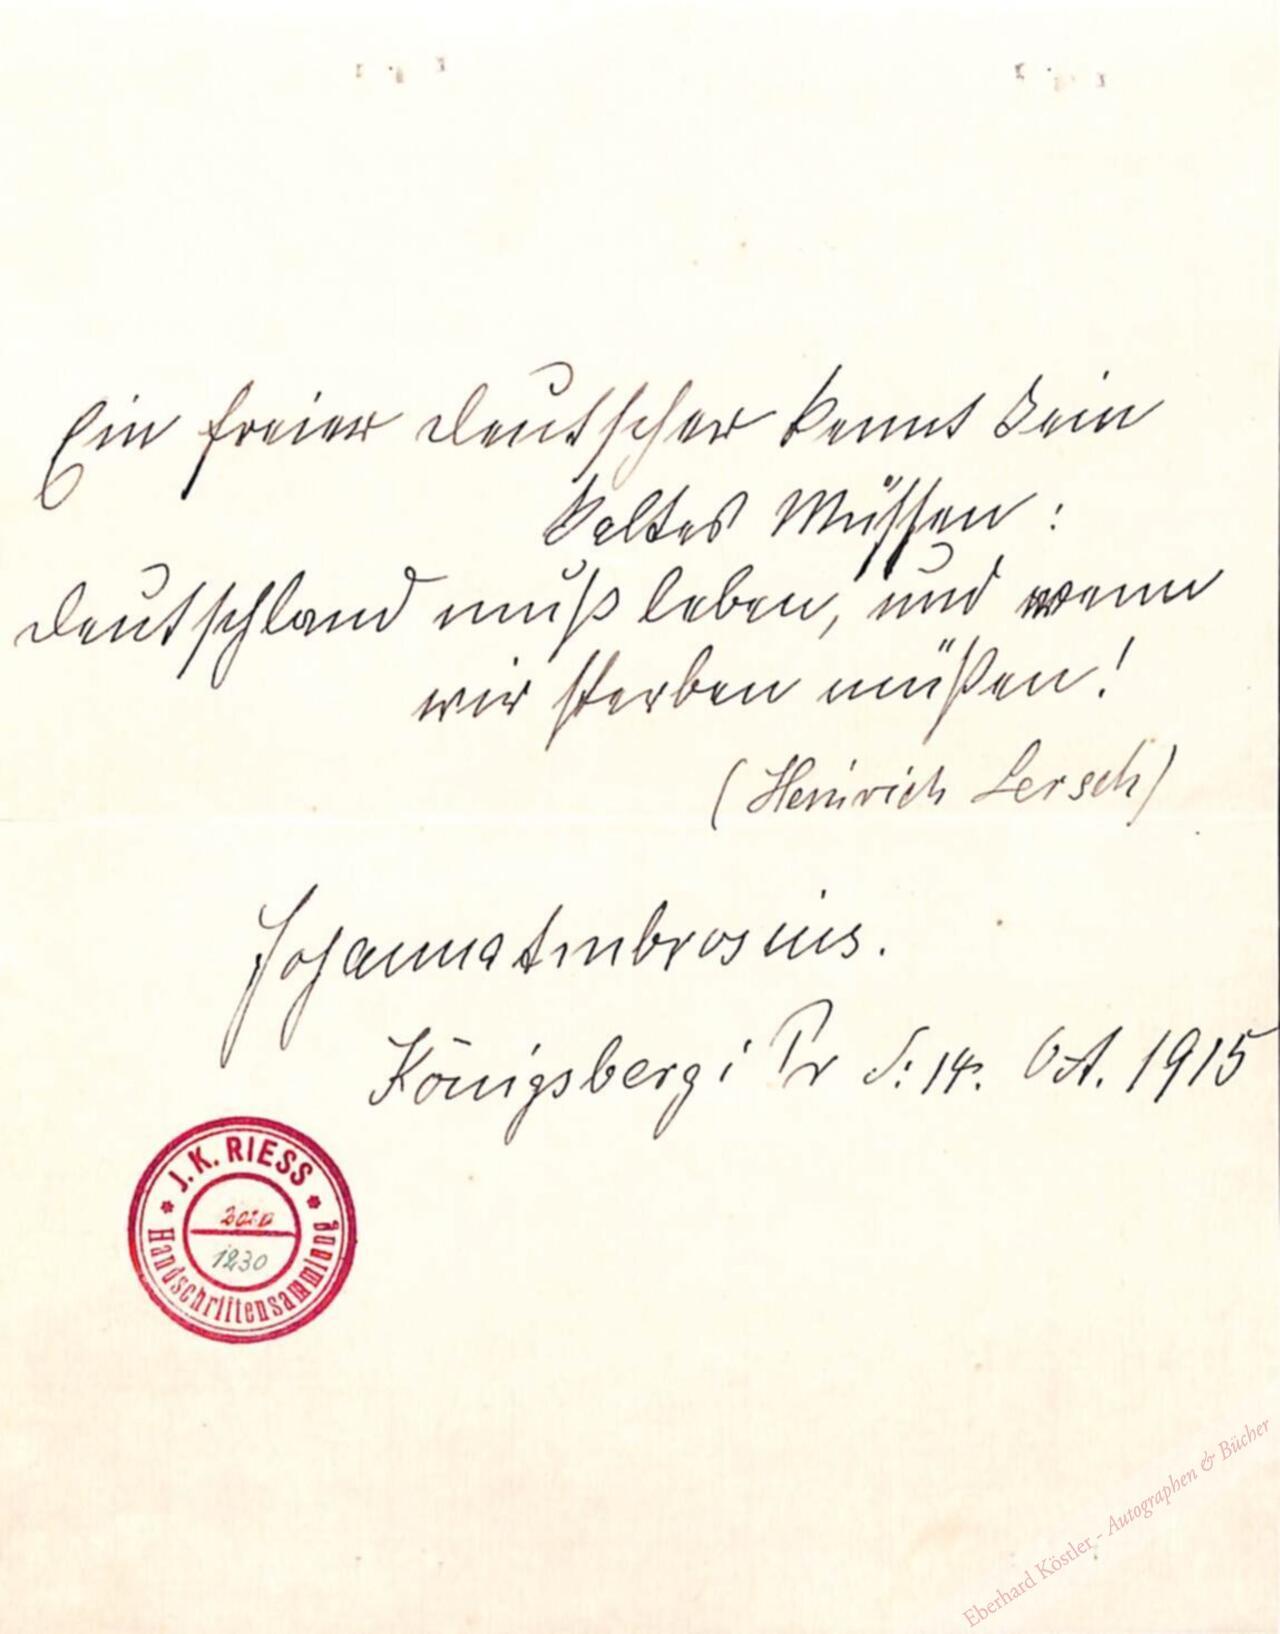 Ein freier Deutscher kennt kein
kaltes Müssen:
Deutschland muß leben, und wenn
wir sterben müßen!
(Heinrich Lersch)
Johanna Ambrosius.
Königsberg i Pr d: 14. Okt. 1915
J. K. RIESS
1230
Handschriftensammlung
Eberhard Köstler - Autographen & Bücher